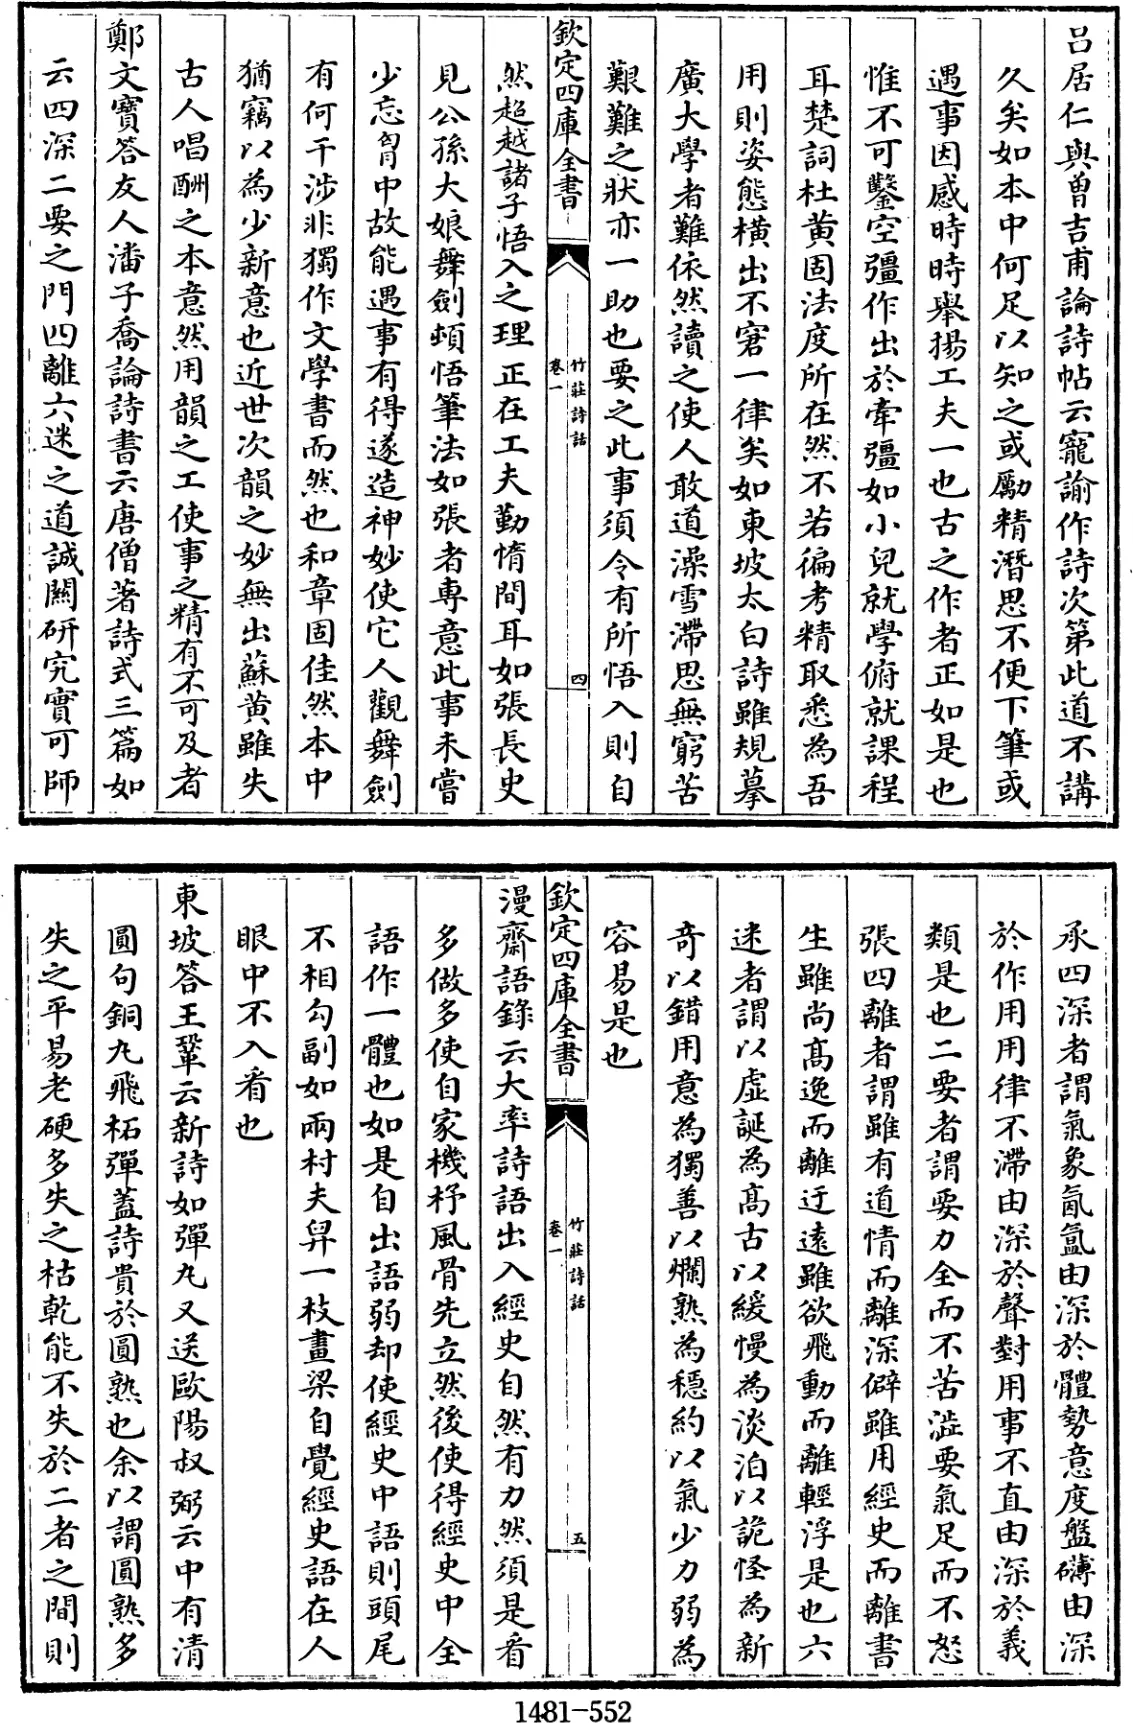 吕居仁與曾吉甫論詩帖云寵諭作詩次第此道不講
久矣如本中何足以知之或勵精潛思不便下筆或
遇事因感時時舉揚工夫一也古之作者正如是也
惟不可鑿空彊作出於牽彊如小兒就學俯就課程
耳楚詞杜黄固法度所在然不若徧考精取悉為吾
用則姿態横出不窘一律矣如東坡太白詩雖規摹
廣大學者難依然讀之使人敢道澡雪滯思無窮苦
艱難之狀亦一助也要之此事須令有所悟入則自
欽定四庫全書
竹莊詩話
卷一
四
然超越諸子悟入之理正在工夫勤惰間耳如張長史
見公孫大娘舞劍頓悟筆法如張者專意此事未嘗
少忘胷中故能遇事有得遂造神妙使它人觀舞劍
有何干涉非獨作文學書而然也和章固佳然本中
猶竊以為少新意也近世次韻之妙無出蘇黄雖失
古人唱酬之本意然用韻之工使事之精有不可及者
鄭文寶答友人潘子喬論詩書云唐僧著詩式三篇如
云四深二要之門四離六迷之道誠闗研究實可師
承四深者謂氣象氤氲由深於體勢意度盤礴由深
於作用用律不滯由深於聲對用事不直由深於義
類是也二要者謂要力全而不苦澁要氣足而不怒
張四離者謂雖有道情而離深僻雖用經史而離書
生雖尚髙逸而離迂遠雖欲飛動而離輕浮是也六
迷者謂以虚誕為髙古以緩慢為淡泊以詭怪為新
奇以錯用意為獨善以爛熟為穏約以氣少力弱為
容易是也
欽定四庫全書
竹莊詩話
卷一
五
漫齋語錄云大率詩語出入經史自然有力然須是看
多做多使自家機杼風骨先立然後使得經史中全
語作一體也如是自出語弱却使經史中語則頭尾
不相勾副如兩村夫舁一枝畫梁自覺經史語在人
眼中不入看也
東坡答王鞏云新詩如彈丸又送歐陽叔弼云中有清
圓句銅丸飛柘彈蓋詩貴於圓熟也余以謂圓熟多
失之平易老硬多失之枯乾能不失於二者之間則
1481-552